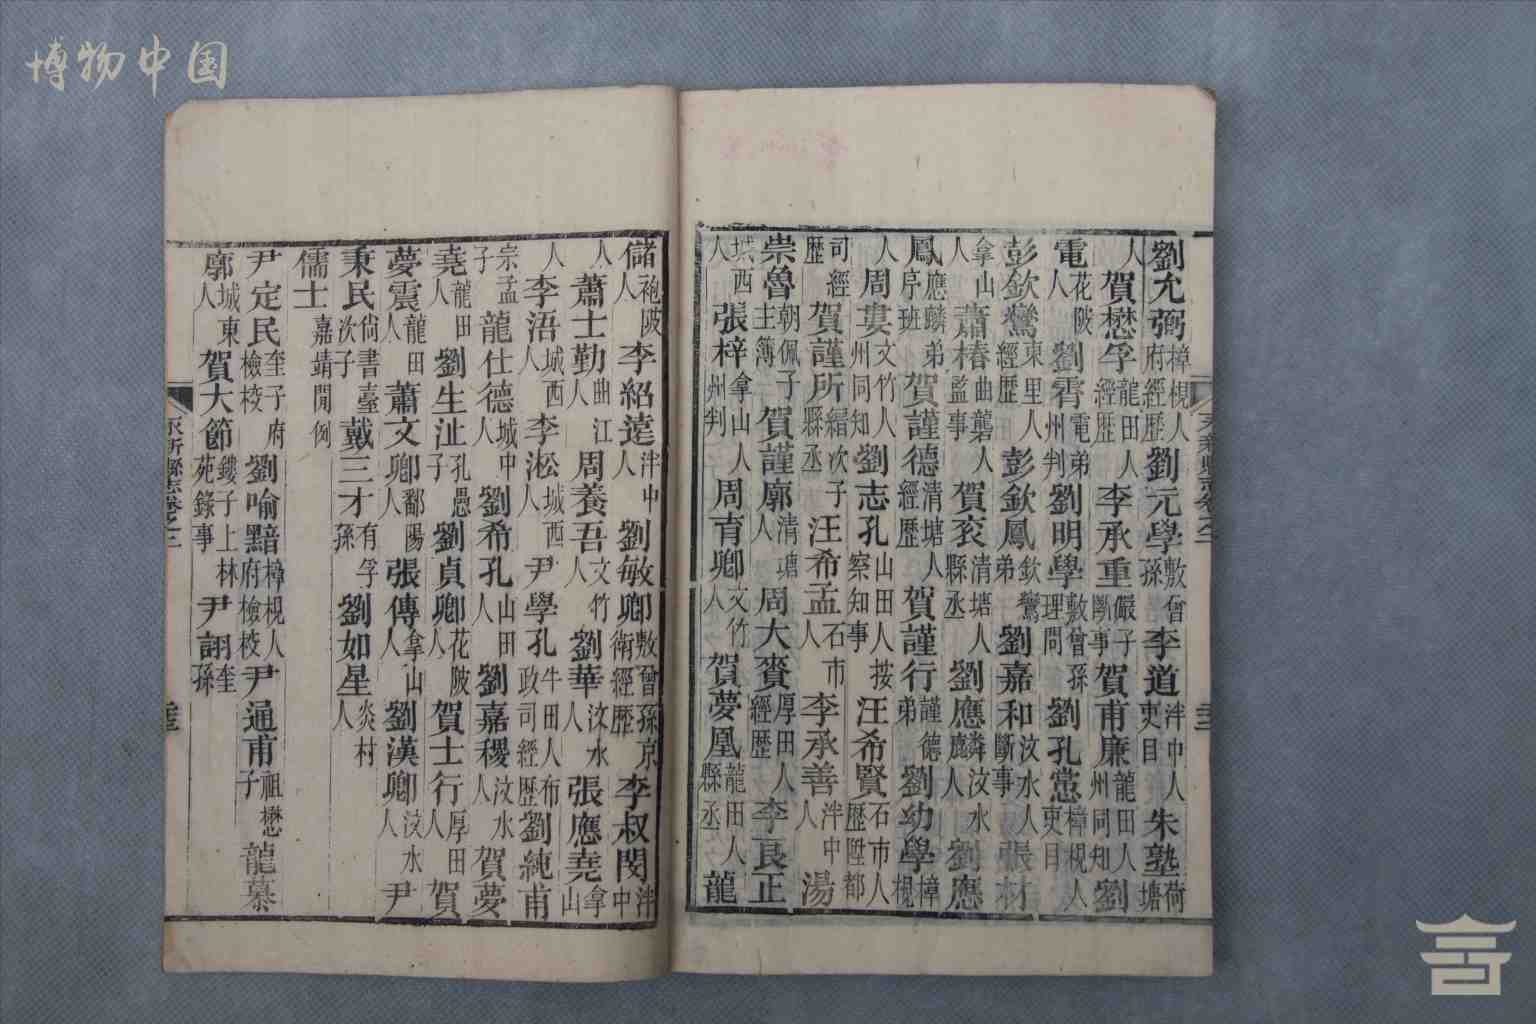 博物中国
劉允弼樟梘人府經歷劉元學敷曾孫李道泮中人吏目朱塾荷塘
人賀懋孚龍田人經歷李承重嚴子斷事賀甫廉龍田人州同知劉
電花陂人劉霄電弟州判劉明學敷曾孫理問劉孔黨樟梘人吏目
彭欽鸞東里人經歷彭欽鳳欽鸞弟劉嘉和汶水人斷事張材
拿山人蕭椿曲龔人監事賀衮清塘人縣丞劉應麟汶水人劉應
鳳應麟弟序班賀謹德清塘人經歷賀謹行謹德弟劉幼學樟梘
人周婁文竹人州同知劉志孔山田人按察知事汪希賢石市人歷陞都
司經歷賀謹所縉次子縣丞汪希孟石市人李承善泮中人湯
崇魯朝佩子主簿賀謹廓清塘人周大賚厚田人經歷李良正
城西人張梓拿山人州判周育卿文竹人賀夢凰龍田人縣丞龍
儲袍陂人李紹逵泮中人劉敏卿敷曾孫京衛經歷李叔閔泮中
人蕭士勤曲江人周養吾文竹人劉華汶水人張應堯拿山
人李浯城西人李淞城西人尹學孔牛田人布政司經歷劉純甫
宗孟子龍仕德城中人劉希孔山田人劉嘉稷汶水人賀夢
堯龍田人劉生沚孔愚子劉貞卿花陂人賀士行厚田人賀
夢震龍田人蕭文卿鄱陽人張傳拿山人劉漢卿汶水人尹
秉民尙書臺次子戴三才有孚孫劉如星炎村人
儒士嘉靖閒例
尹定民奎子府檢校劉喻黯樟梘人府檢校尹通甫祖懋子龍慕
廓城東人賀大節鏤子上林苑錄事尹詡奎孫
永新縣志卷之三